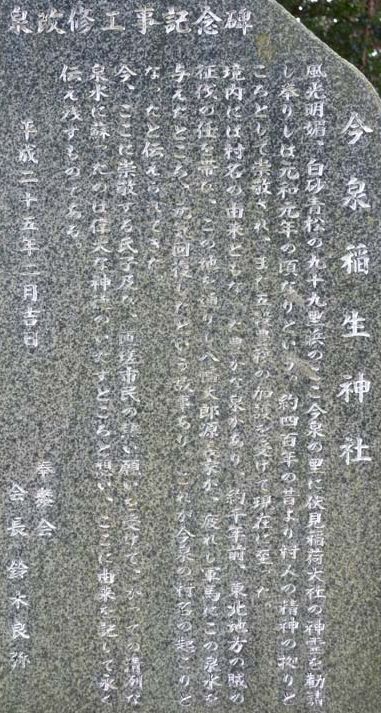 泉改修工事記念碑
今泉稲生神社
風光明媚、白砂青松の九十九里浜のここ今泉の里に伏見稲荷大社の神霊を勧請
し奉りしは元和元年の頃なりという。約四百年の昔より村人の精神の拠りと
ころとして崇敬され、また五穀豊穣の加護を受けて現在に至った
境内には村名の由来ともなった豊かな泉があり、約千年前、東北地方の賊の
征伐の任を帯び、この地を通りし八幡太郎源義家が、疲れし軍馬にこの泉水を
与えたところ、元気回復したという故事あり、これが今泉の村名の起こりと
なったと伝えられてきた
今、ここに崇敬する氏子及び、匝瑳市民の熱い願いを受けて、かつての清冽な
泉水に蘇ったのは偉大な神徳のいたすところと想い、ここに由来を記して永く
伝え残すものである。
平成二十五年二月吉日
奉賛会
会長 鈴木良弥